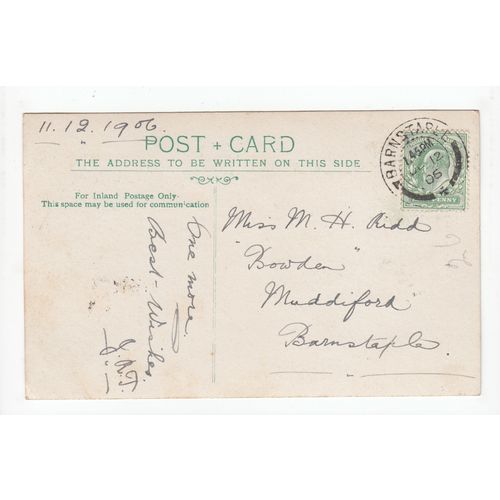 11.12.1906.
POST + CARD
THE ADDRESS TO BE WRITTEN ON THIS SIDE
For Inland Postage Only-
This space may be used for communication
One more.
Best-Wishes.
Miss M. H. Ridd
"Bowden"
Muddiford
Barnstaple.
BARNSTAPLE
12
PENNY